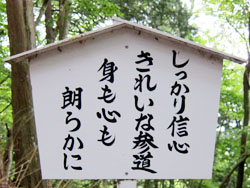 しっかり信心
きれいな参道
身も心も
朗らかに